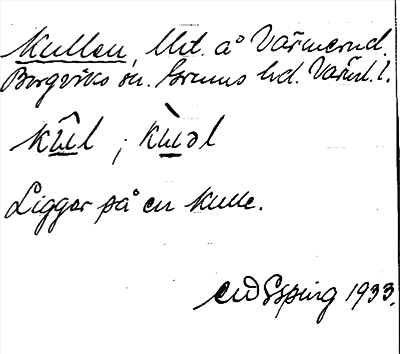 Kullen, Mt. å Värmerud.
Borgviks sn. Grums hd. Värml. l.
kûl ; kùəl
Ligger på en kulle.
Esping 1933.